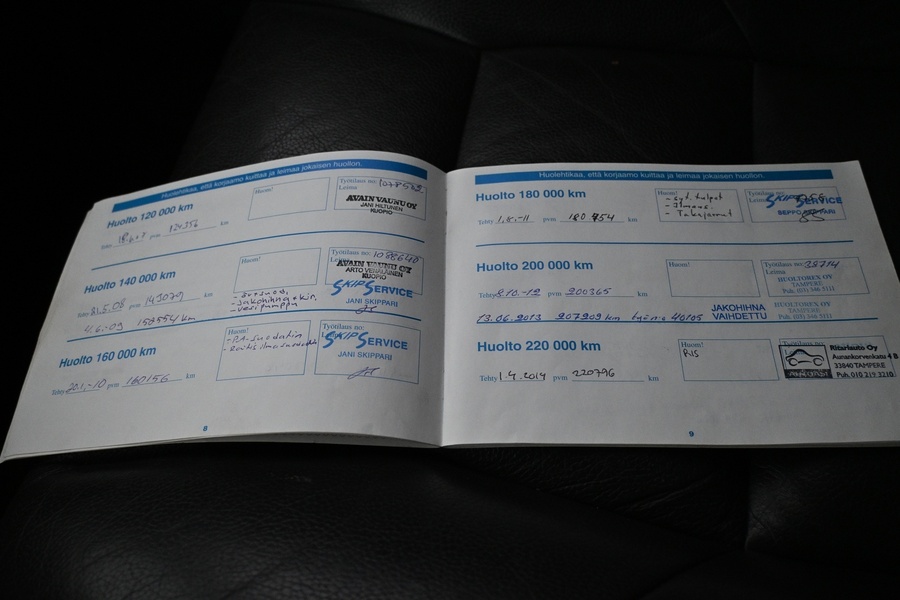 Huolehtikaa, että korjaamo kuittaa ja leimaa jokaisen huollon.
Huolto 120 000 km
Tehty pvm 124356 km
Huom!
Työtilaus no:
Leima
AVAIN VAUNU OY
JANI HILTUNEN
KUOPIO
Huolto 140 000 km
Tehty 21.5.08 pvm 143079 km
4.6.-09 158554 km
- jakohihna + kir.
- vesipumppu
Työtilaus no:
AVAIN VAUNU OY
ARTO VENÄLÄINEN
KUOPIO
SKIP SERVICE
JANI SKIPPARI
Huolto 160 000 km
Tehty 20.1.-10 pvm 160156 km
Huom!
- PA-suodatin
Työtilaus no:
SKIP SERVICE
JANI SKIPPARI
8
Huolehtikaa, että korjaamo kuittaa ja leimaa jokaisen huollon.
Huolto 180 000 km
Tehty 1.6.-11 pvm km
Huom!
- syt. tulpat
- Takajarrut
Työtilaus no:
SKIP SERVICE
SEPPO SKIPPARI
Huolto 200 000 km
Tehty 8.10.-12 pvm 200365 km
Huom!
Työtilaus no: 38714
Leima
HUOLTOREX OY
TAMPERE
13.06.2013 207209 km työnro 40105 JAKOHIHNA VAIHDETTU
HUOLTOREX OY
TAMPERE
Huolto 220 000 km
Tehty 1.4.2014 pvm 220796 km
Huom!
Työtilaus no:
Ritariauto Oy
Aunankorvenkatu 4 B
33840 TAMPERE
Puh. 010 219 3210
9